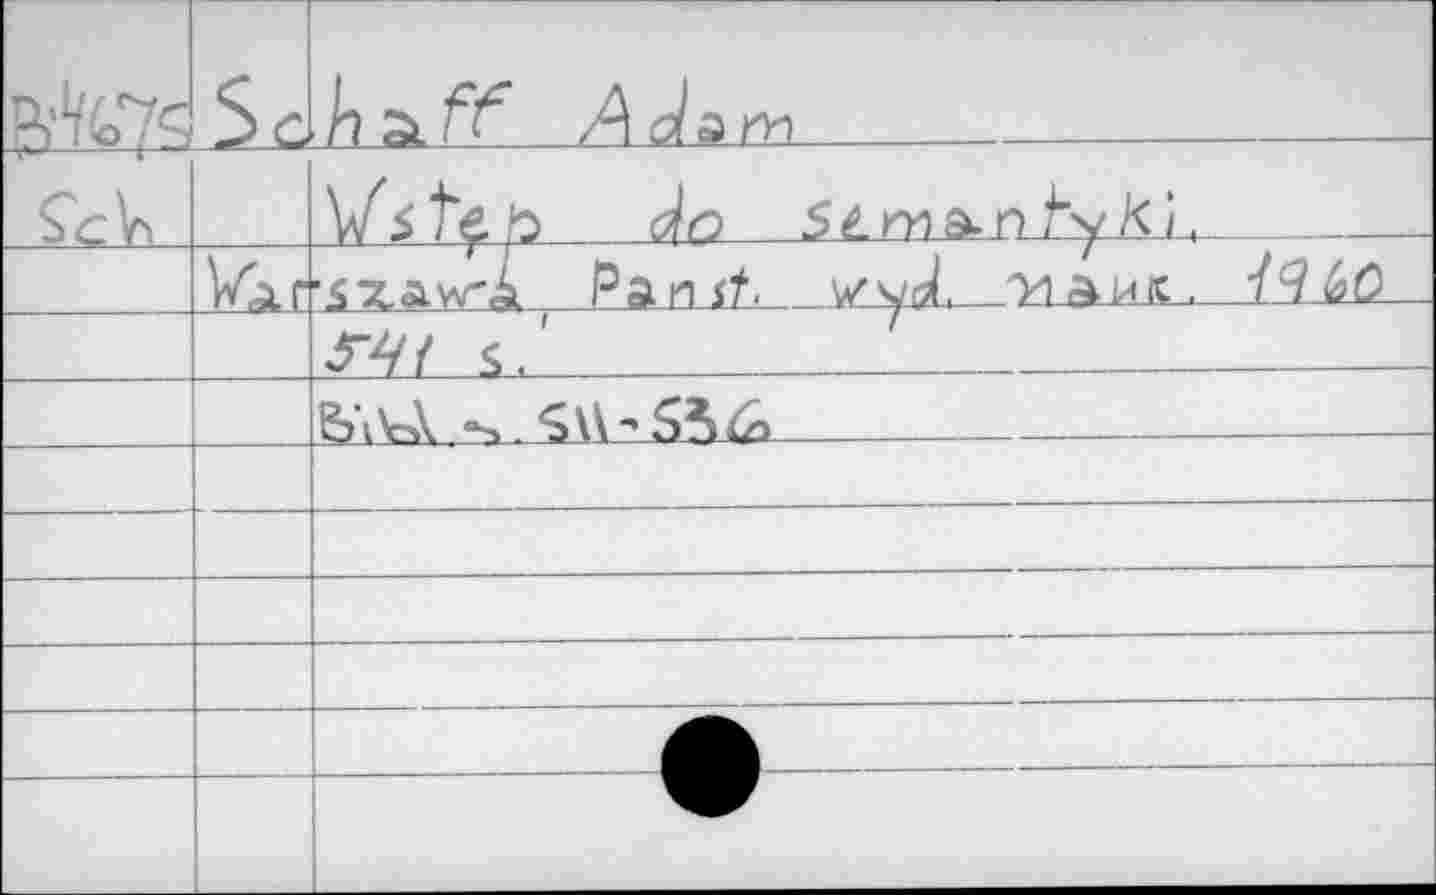 B4675 Schaff Adam
Sch Wstęp do semantyki,
Warszawa, Panst. wyd. nauk. 1960
541 s.
Bibl. s. 511-536